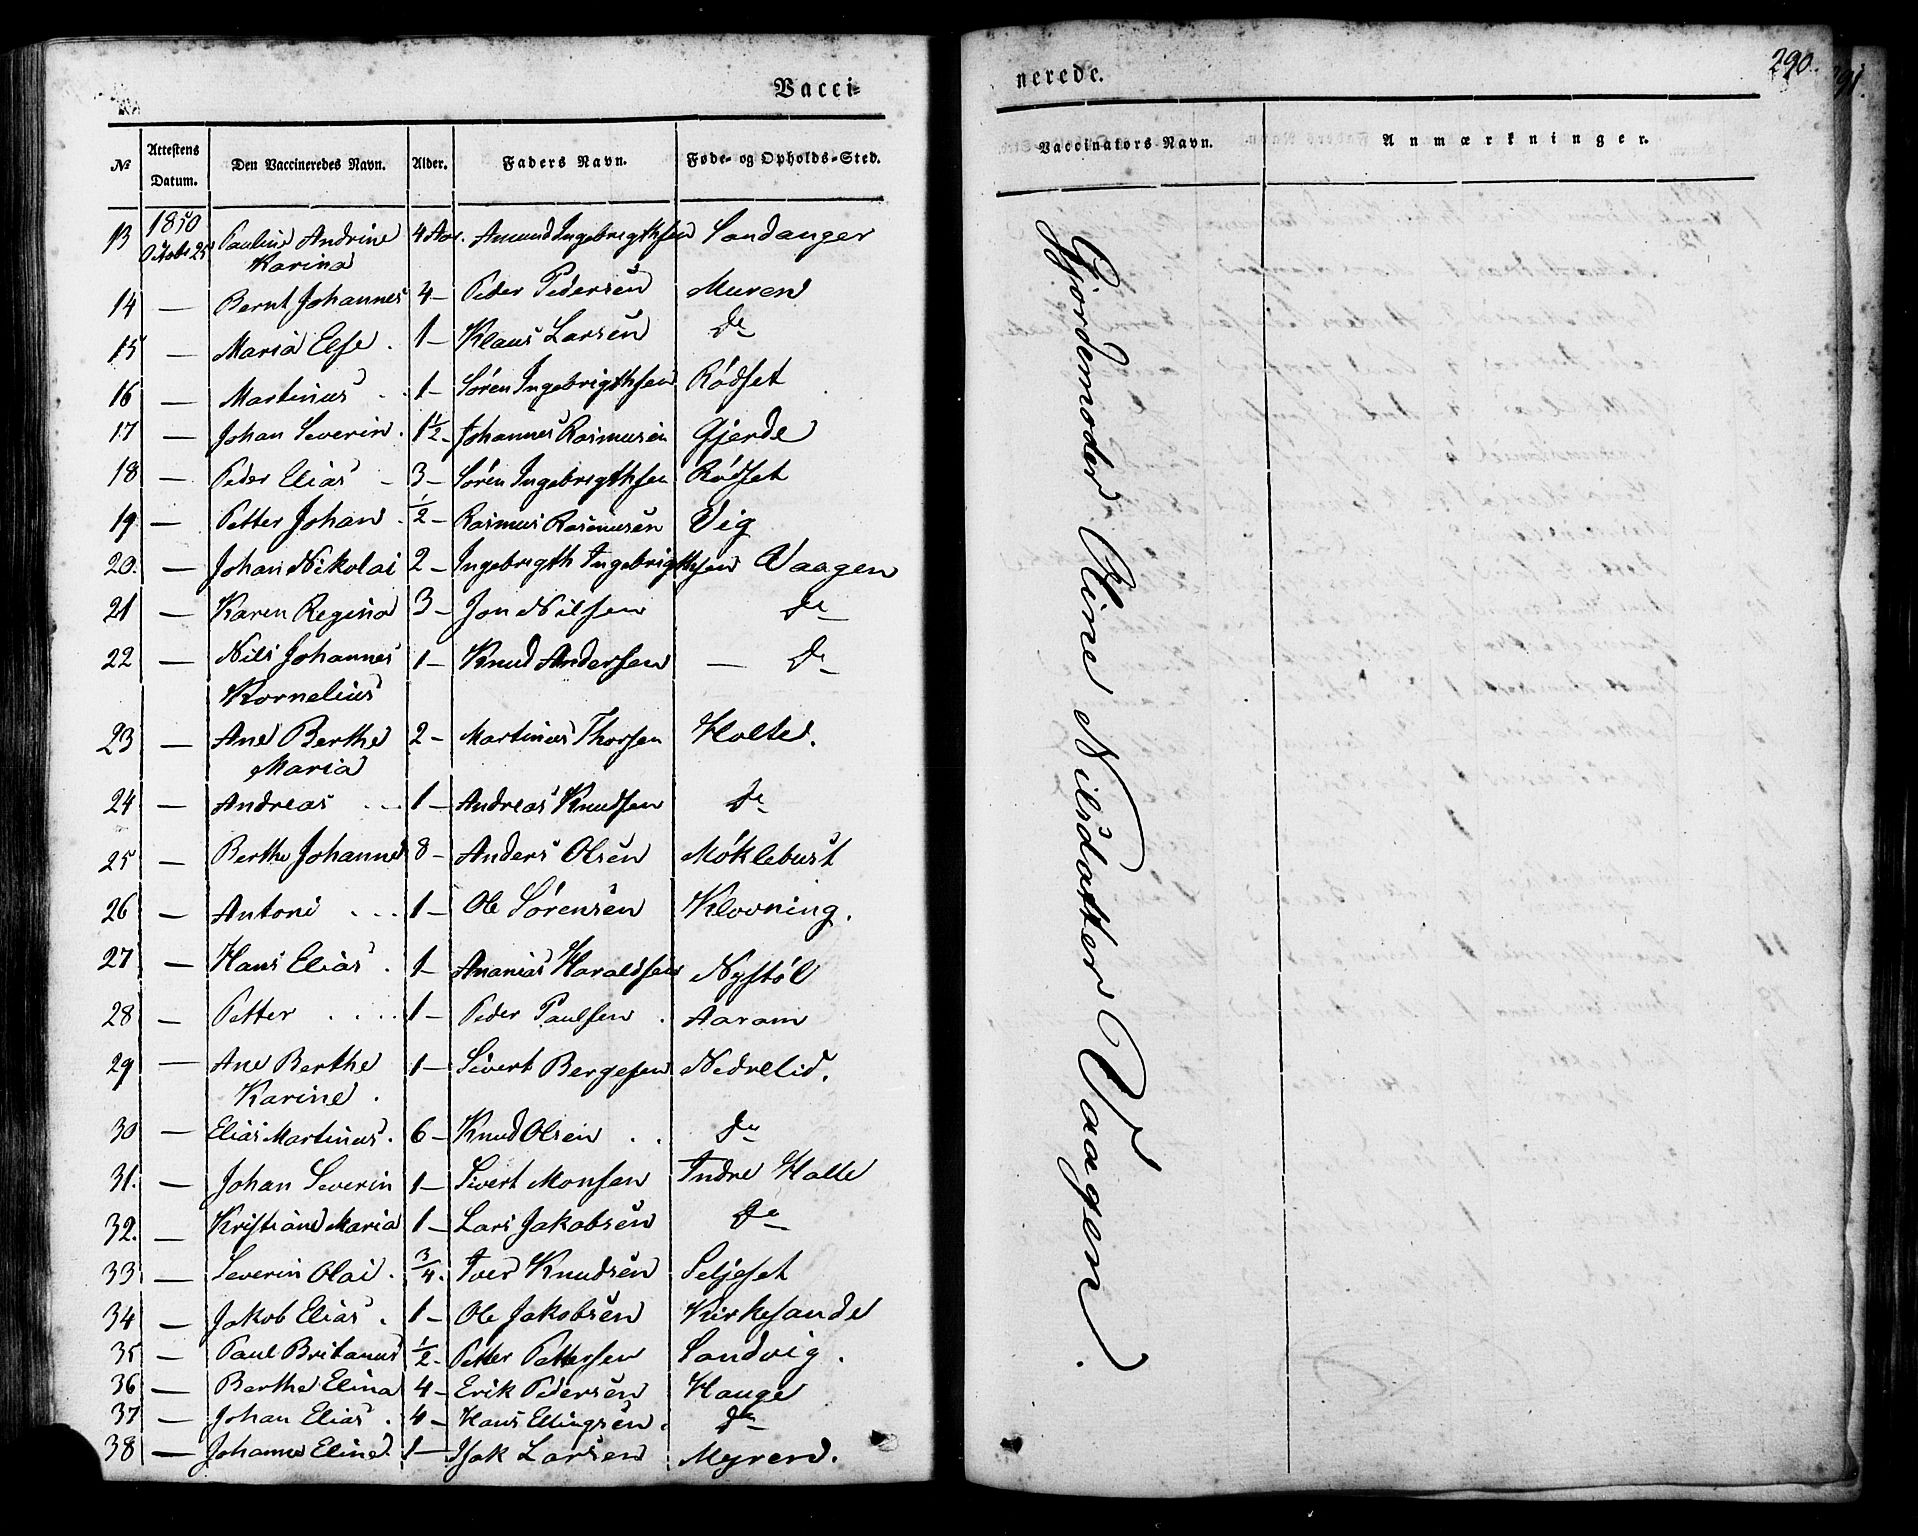 Vacci-
№ Attestens Datum. Den Vaccineredes Navn. Alder. Faders Navn. Føde- og Opholds-Sted.
1850
13 Octobr 25 Pauline Andrine 4 Aar. Amund Ingebrigthsen Sandanger
Karina
14 — Bernt Johannes 4 — Peder Pedersen Muren
15 — Maria Else . 1 — Klaus Larsen Do
16 — Martinus . . 1 — Søren Ingebrigthsen Rødset
17 — Johan Severin . 1½ — Johannes Rasmusen Gjerde
18 — Peder Elias - 3 — Søren Ingebrigthsen Rødset
19 — Petter Johan . ½ — Rasmus Rasmusen Vig
20. — Johan Nikolai 2 — Ingebrigth Ingebrigthsen Vaagen
21 — Karen Regina 3 — Jon Nilsen Do
22 — Nils Johannes 1 — Knud Andersen — Do
Kornelius
23 — Ane Berthe 2 — Martinus Thorsen Holte.
Maria
24 — Andreas . . . 1 — Andreas Knudsen Do
25 — Berthe Johanne 8 — Anders Olsen Møklebust
26 — Antoni . . . 1 — Ole Sørensen Klovning.
27 — Hans Elias . 1 — Ananias Haraldsen Nystøl
28 — Petter . . . . 1 — Peder Paulsen . Aaram
29 — Ane Berthe 1 — Sivert Bergesen Nedrelid.
Karine .
30 — Elias Martinus . 6 — Knud Olsen . . Do
31. — Johan Severin 1 — Sivert Monsen Indre Holte
32. — Kristiane Maria 1 — Lars Jakobsen Do
33 — Severin Olai . ¾ . Iver Knudsen Seljeset
34 — Jakob Elias . 1 — Ole Jakobsen Kirkesande
35 — Paul Britanus ½ — Petter Pettersen Sandvig .
36 — Berthe Elina 4 — Erik Pedersen Hauge
37 — Johan Elias . 4 — Hans Ellingsen . Do
38 — Johanne Eline 1 — Isak Larsen Myren.
nerede.
290.
291.
Vaccinators Navn. Anmærkninger.
Gjordemoder Oline Nilsdatter Vaagen.